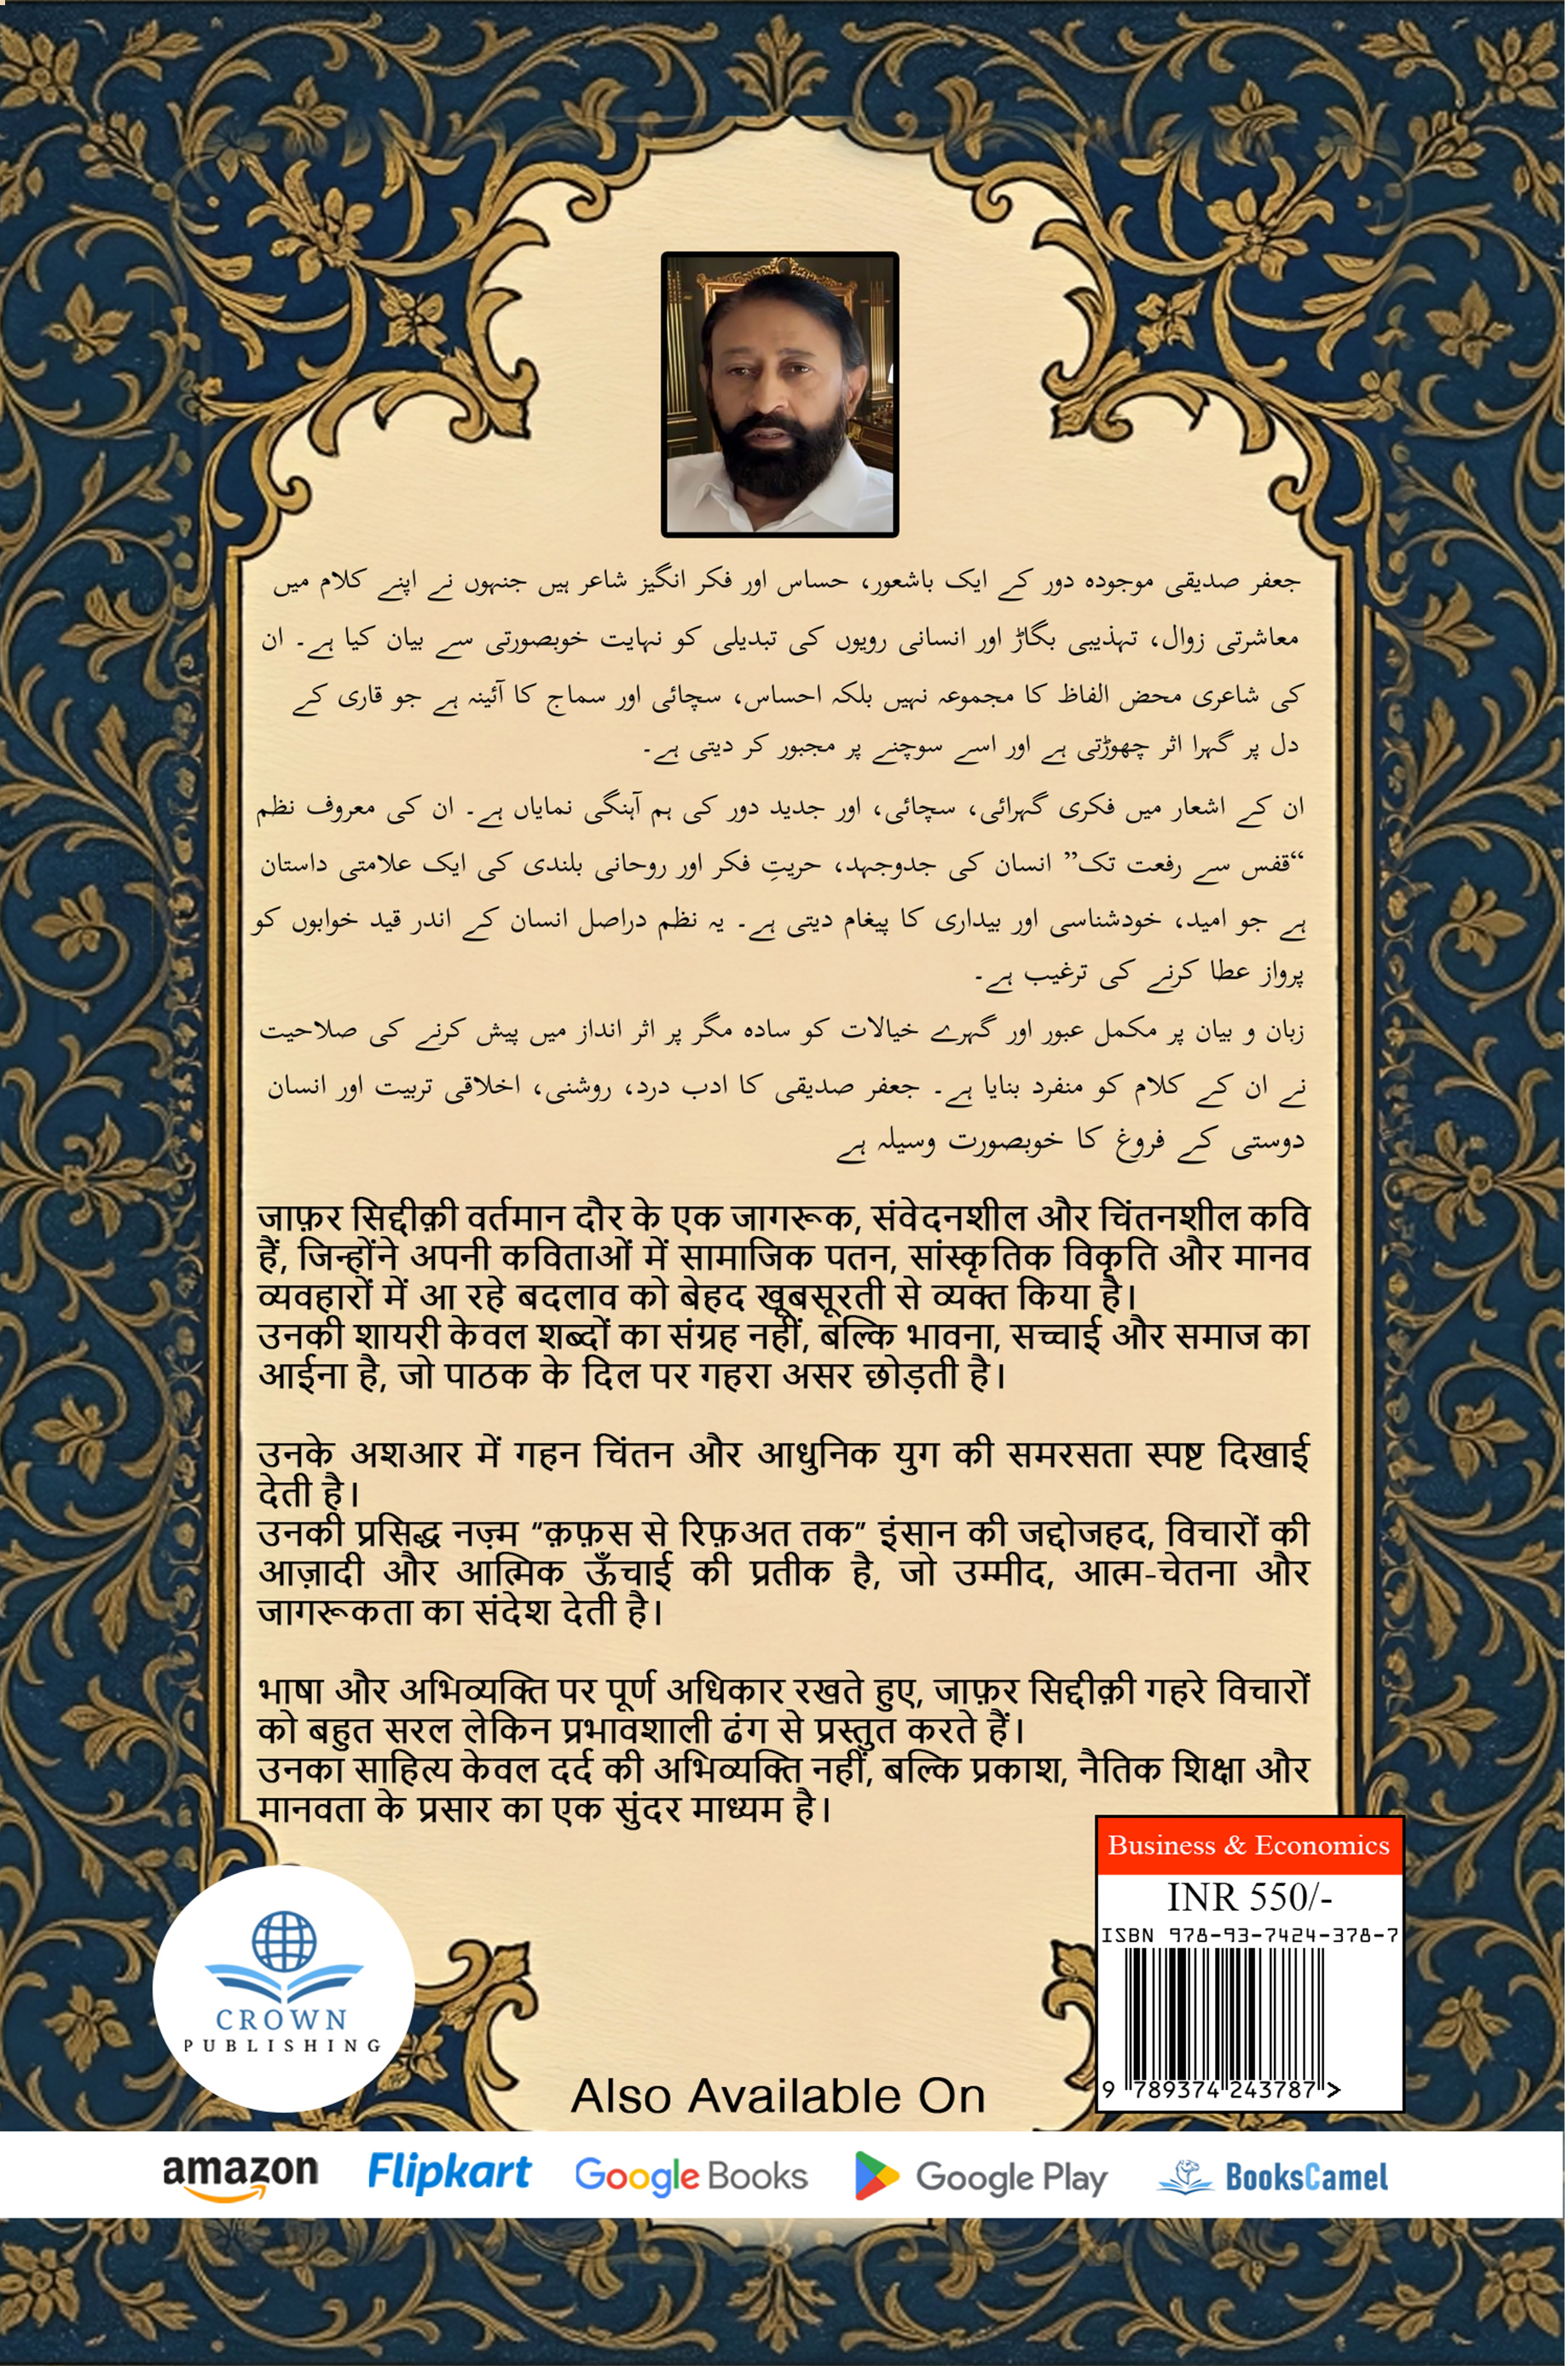 جعفر صدیقی موجودہ دور کے ایک باشعور، حساس اور فکر انگیز شاعر ہیں جنہوں نے اپنے کلام میں
معاشرتی زوال، تہذیبی بگاڑ اور انسانی رویوں کی تبدیلی کو نہایت خوبصورتی سے بیان کیا ہے۔ ان
کی شاعری محض الفاظ کا مجموعہ نہیں بلکہ احساس، سچائی اور سماج کا آئینہ ہے جو قاری کے
دل پر گہرا اثر چھوڑتی ہے اور اسے سوچنے پر مجبور کر دیتی ہے۔
ان کے اشعار میں فکری گہرائی، سچائی، اور جدید دور کی ہم آہنگی نمایاں ہے۔ ان کی معروف نظم
“قفس سے رفعت تک” انسان کی جدوجہد، حریتِ فکر اور روحانی بلندی کی ایک علامتی داستان
ہے جو امید، خودشناسی اور بیداری کا پیغام دیتی ہے۔ یہ نظم دراصل انسان کے اندر قید خوابوں کو
پرواز عطا کرنے کی ترغیب ہے۔
زبان و بیان پر مکمل عبور اور گہرے خیالات کو سادہ مگر پر اثر انداز میں پیش کرنے کی صلاحیت
نے ان کے کلام کو منفرد بنایا ہے۔ جعفر صدیقی کا ادب درد، روشنی، اخلاقی تربیت اور انسان
دوستی کے فروغ کا خوبصورت وسیلہ ہے
जाफ़र सिद्दीक़ी वर्तमान दौर के एक जागरूक, संवेदनशील और चिंतनशील कवि
हैं, जिन्होंने अपनी कविताओं में सामाजिक पतन, सांस्कृतिक विकृति और मानव
व्यवहारों में आ रहे बदलाव को बेहद खूबसूरती से व्यक्त किया है।
उनकी शायरी केवल शब्दों का संग्रह नहीं, बल्कि भावना, सच्चाई और समाज का
आईना है, जो पाठक के दिल पर गहरा असर छोड़ती है।
उनके अशआर में गहन चिंतन और आधुनिक युग की समरसता स्पष्ट दिखाई
देती है।
उनकी प्रसिद्ध नज़्म “क़फ़स से रिफ़अत तक” इंसान की जद्दोजहद, विचारों की
आज़ादी और आत्मिक ऊँचाई की प्रतीक है, जो उम्मीद, आत्म-चेतना और
जागरूकता का संदेश देती है।
भाषा और अभिव्यक्ति पर पूर्ण अधिकार रखते हुए, जाफ़र सिद्दीक़ी गहरे विचारों
को बहुत सरल लेकिन प्रभावशाली ढंग से प्रस्तुत करते हैं।
उनका साहित्य केवल दर्द की अभिव्यक्ति नहीं, बल्कि प्रकाश, नैतिक शिक्षा और
मानवता के प्रसार का एक सुंदर माध्यम है।
Business & Economics
INR 550/-
ISBN 978-93-7424-378-7
9 789374 243787 >
CROWN
PUBLISHING
Also Available On
amazon Flipkart Google Books Google Play BooksCamel